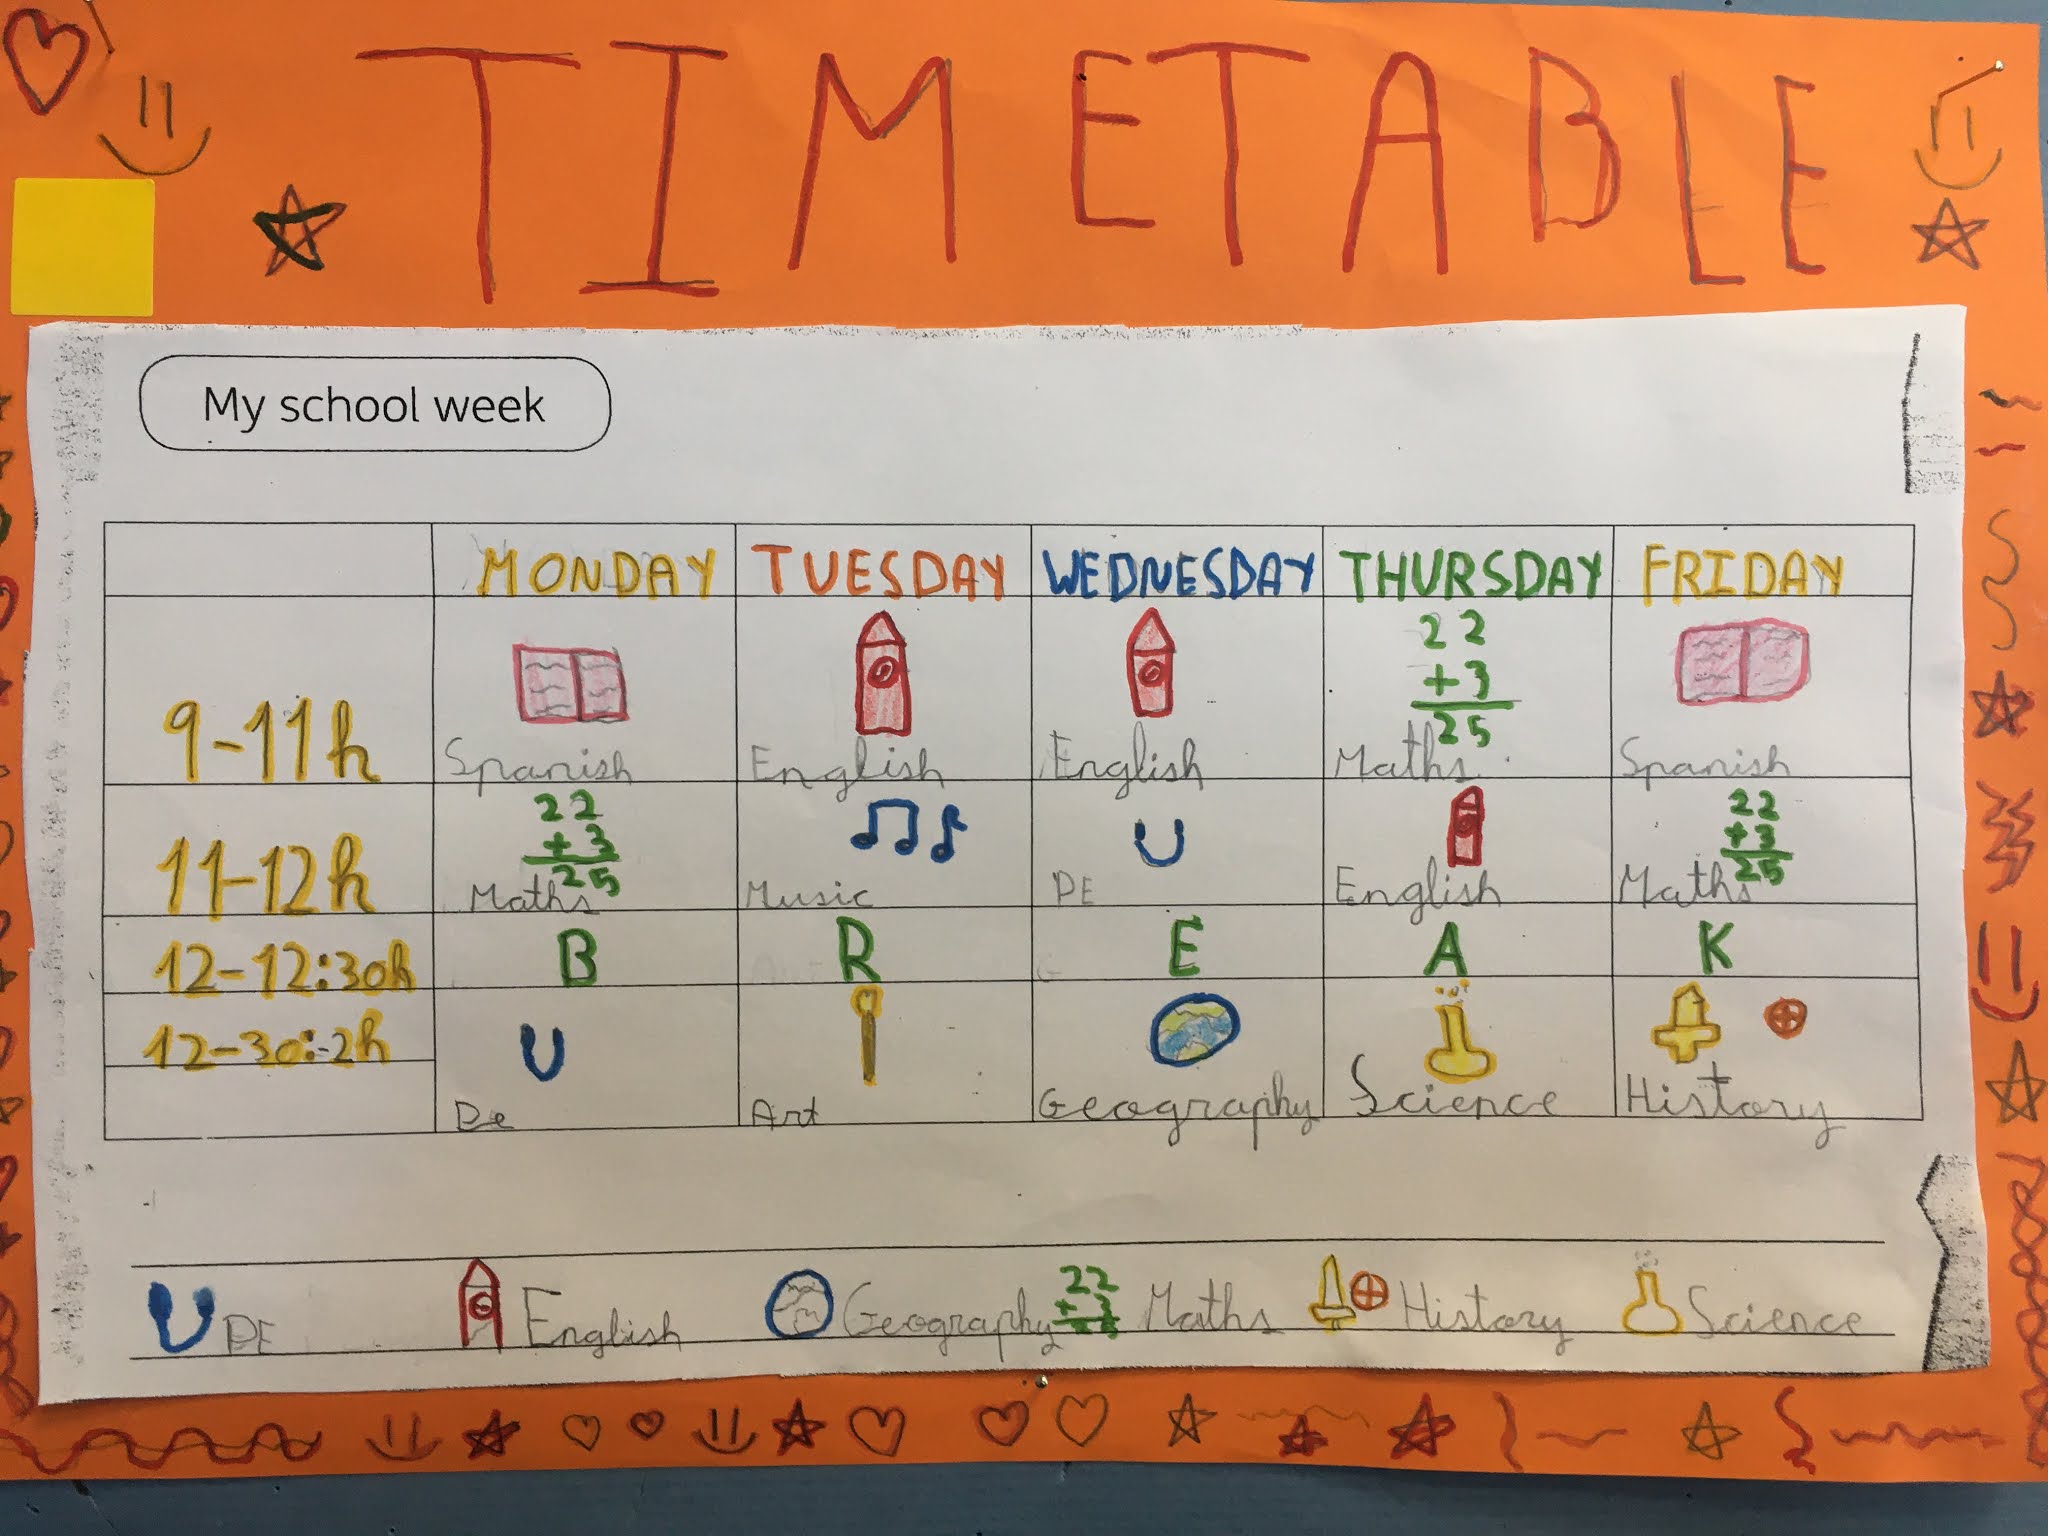 TIMETABLE
My school week
MONDAY TUESDAY WEDNESDAY THURSDAY FRIDAY
22
+3
25
9-11h Spanish English English Maths Spanish
22 22
+ 3 +3
25 25
11-12h Maths Music PE English Maths
12-12:30h B R E A K
12-30:-2h
Pe Art Geography Science History
22
+ 3
25
PE English Geography Maths History Science